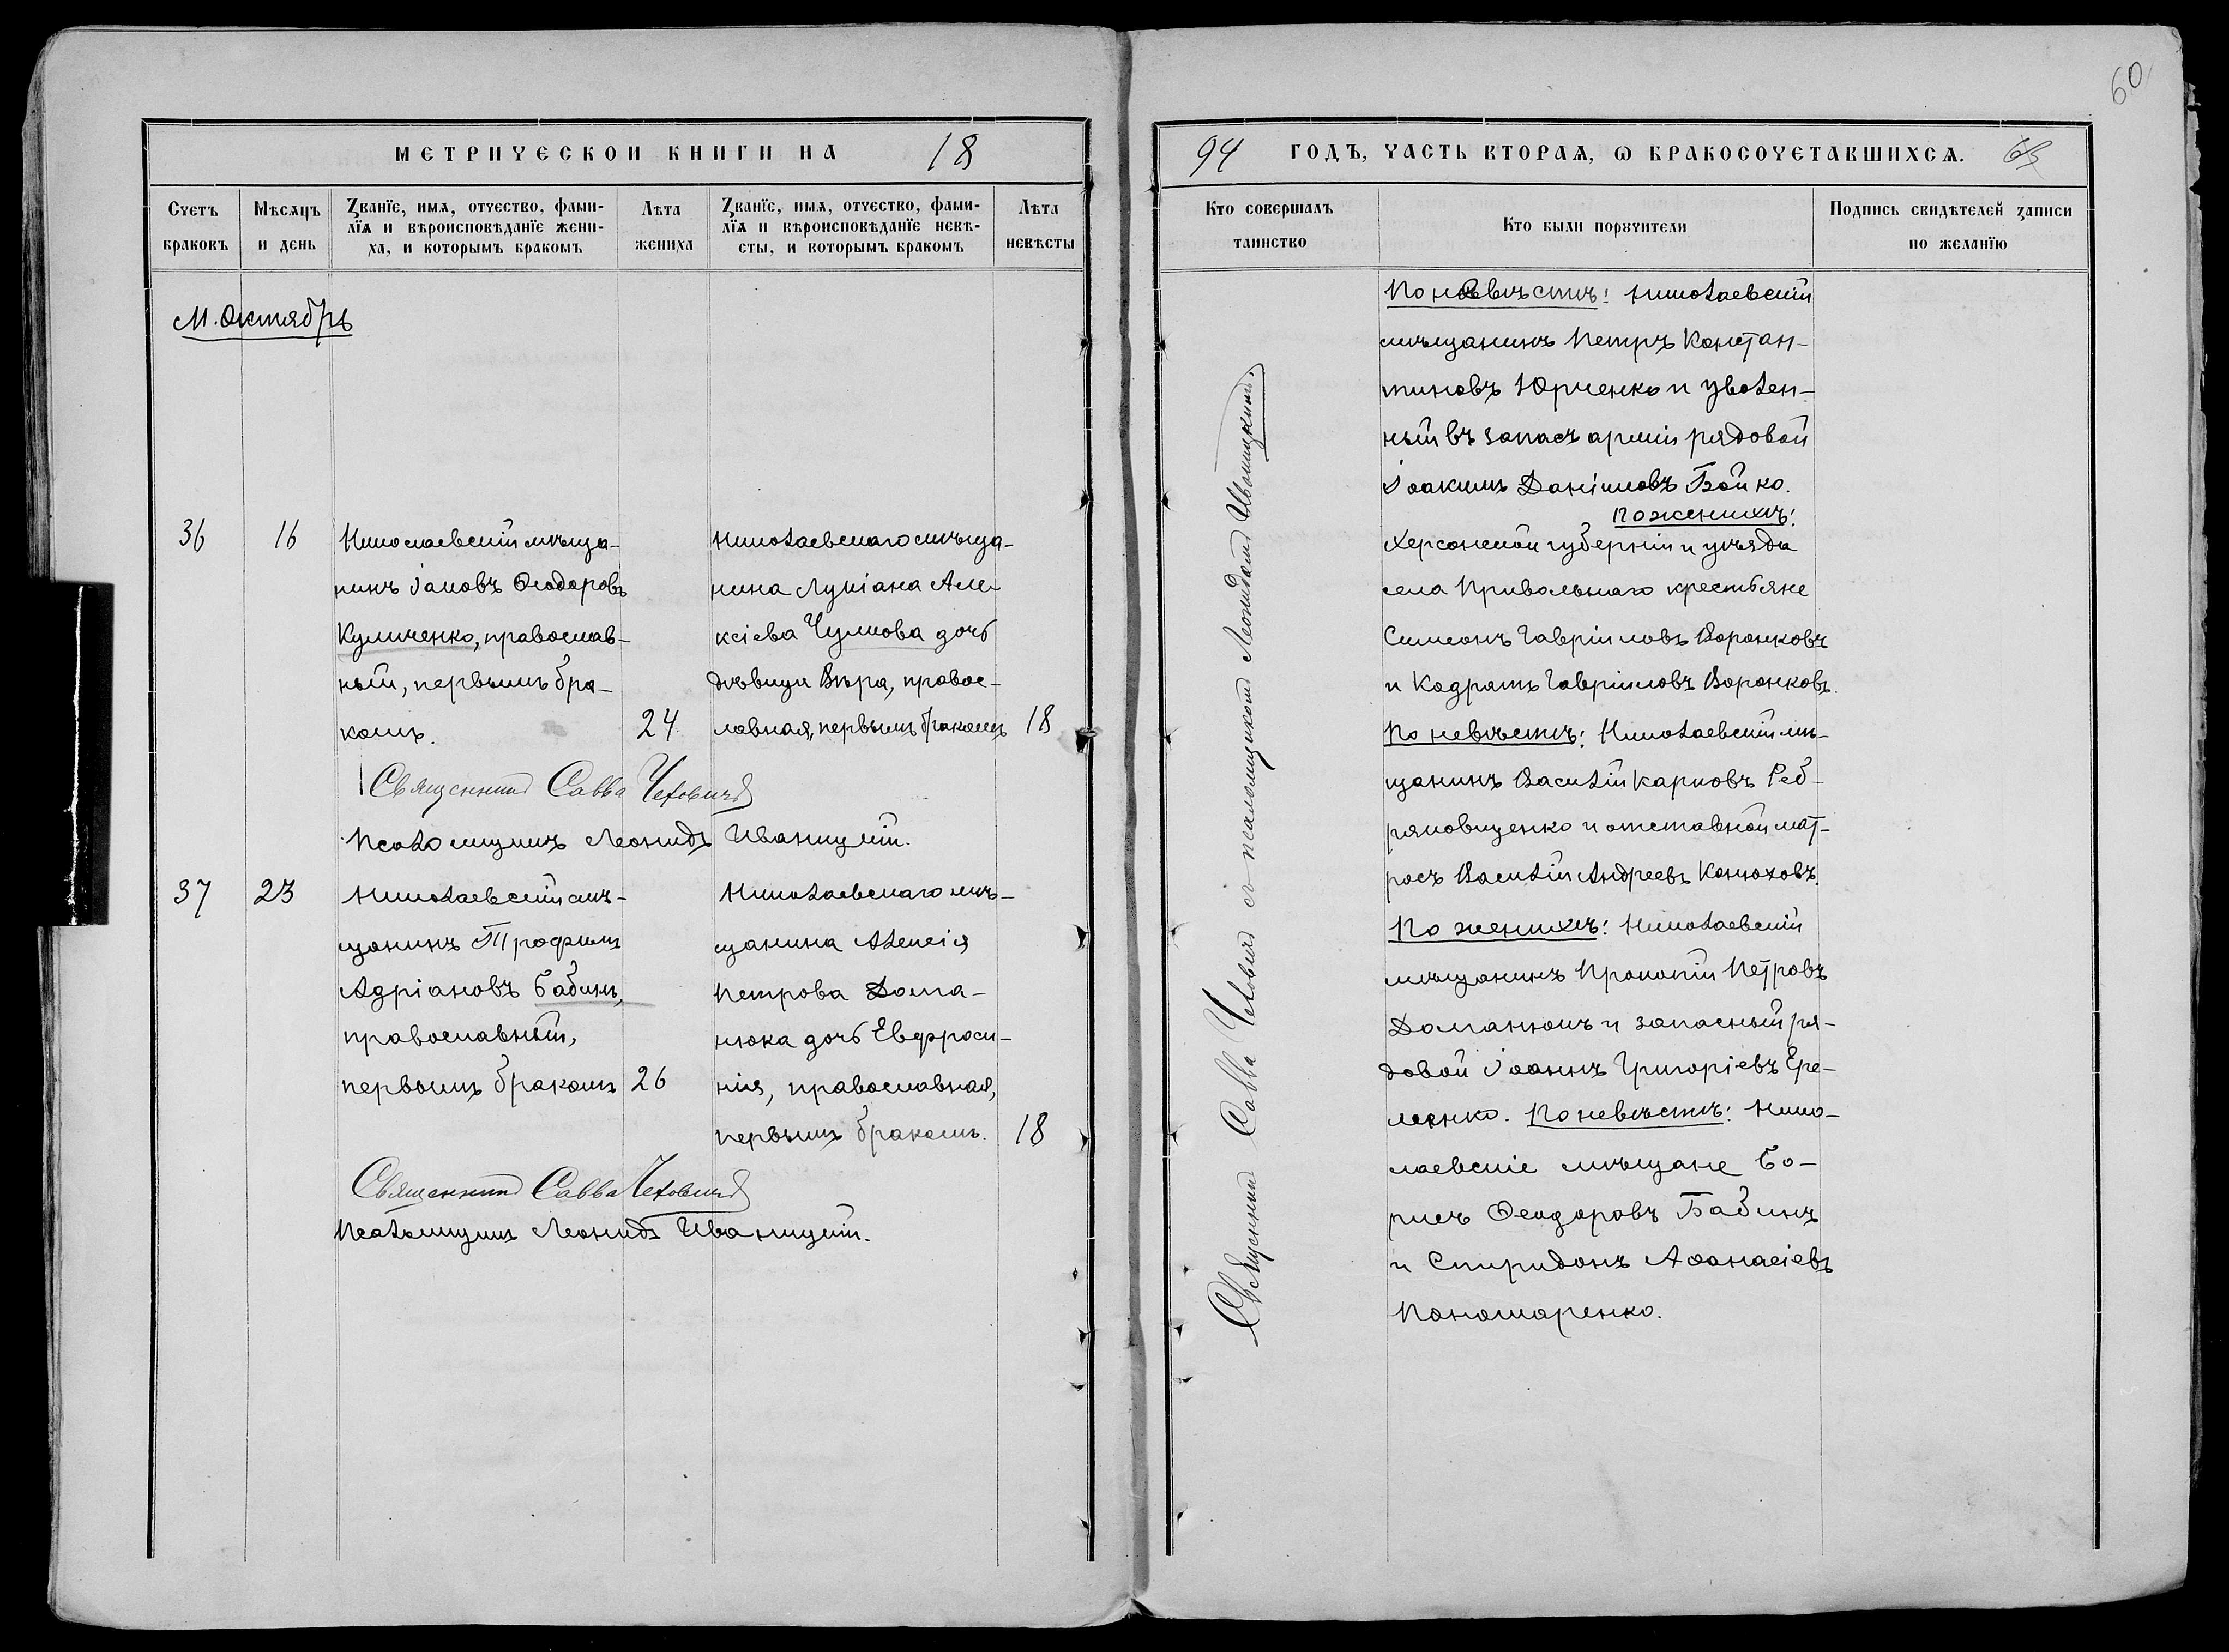 60
МЕТРИЧЕСКОЙ КНИГИ НА 18
94 ГОДЪ, ЧАСТЬ ВТОРАѦ, Ѡ БРАКОСОЧЕТАВШИХСѦ. 65
Счетъ браковъ
Мѣсѧцъ и день
Званїе, имѧ, отчество, фами-
лїѧ и вѣроисповѣданїе жени-
ха, и которымъ бракомъ
Лѣта жениха
Званїе, имѧ, отчество, фами-
лїѧ и вѣроисповѣданїе невѣ-
сты, и которымъ бракомъ
Лѣта невѣсты
Кто совершалъ таинство
Кто были порꙋчители
Подпись свидѣтелей записи по желанїю
М. Октябрь
36
16
Николаевскій мѣща-
нинъ Іаковъ Ѳеодоровъ
Куличенко, православ-
ный, первымъ бра-
комъ.
24
Николаевскаго мѣща-
нина Лукіана Але-
ксіева Чумкова дочь
дѣвица Вѣра, правос-
лавная, первымъ бракомъ
18
Священникъ Савва Чехович
Псаломщикъ Леонидъ Иваницкій.
37
23
Николаевскій мѣ-
щанинъ Трофимъ
Адріановъ Бабинъ,
православный,
первымъ бракомъ
26
Николаевскаго мѣ-
щанина Алексія
Петрова Дома-
нюка дочь Евфроси-
нія, православная,
первымъ бракомъ.
18
Священникъ Савва Чехович
Псаломщикъ Леонидъ Иваницкій.
Священникъ Савва Чехович съ псаломщикомъ Леонидомъ Иваницкимъ.
По невѣстѣ: Николаевскій
мѣщанинъ Петръ Констан-
тиновъ Юрченко и уволен-
ный въ запасъ арміи рядовой
Іоакимъ Даніиловъ Бойко.
По женихѣ:
Херсонской губерніи и уѣзда
села Привольнаго крестьяне
Симеонъ Гавріиловъ Воронковъ
и Кодратъ Гавріиловъ Воронковъ.
По невѣстѣ: Николаевскій мѣ-
щанинъ Василій Карповъ
и отставной мат-
росъ Василій Андреевъ Конюховъ.
По женихѣ: Николаевскій
мѣщанинъ Прокопій Петровъ
Доманюкъ и запасный ря-
довой Іоаннъ Григоріевъ Ере-
менко. По невѣстѣ: Нико-
лаевскіе мѣщане Бо-
рисъ Ѳеодоровъ Бабинъ
и Спиридонъ Аѳанасіевъ
Пономаренко.